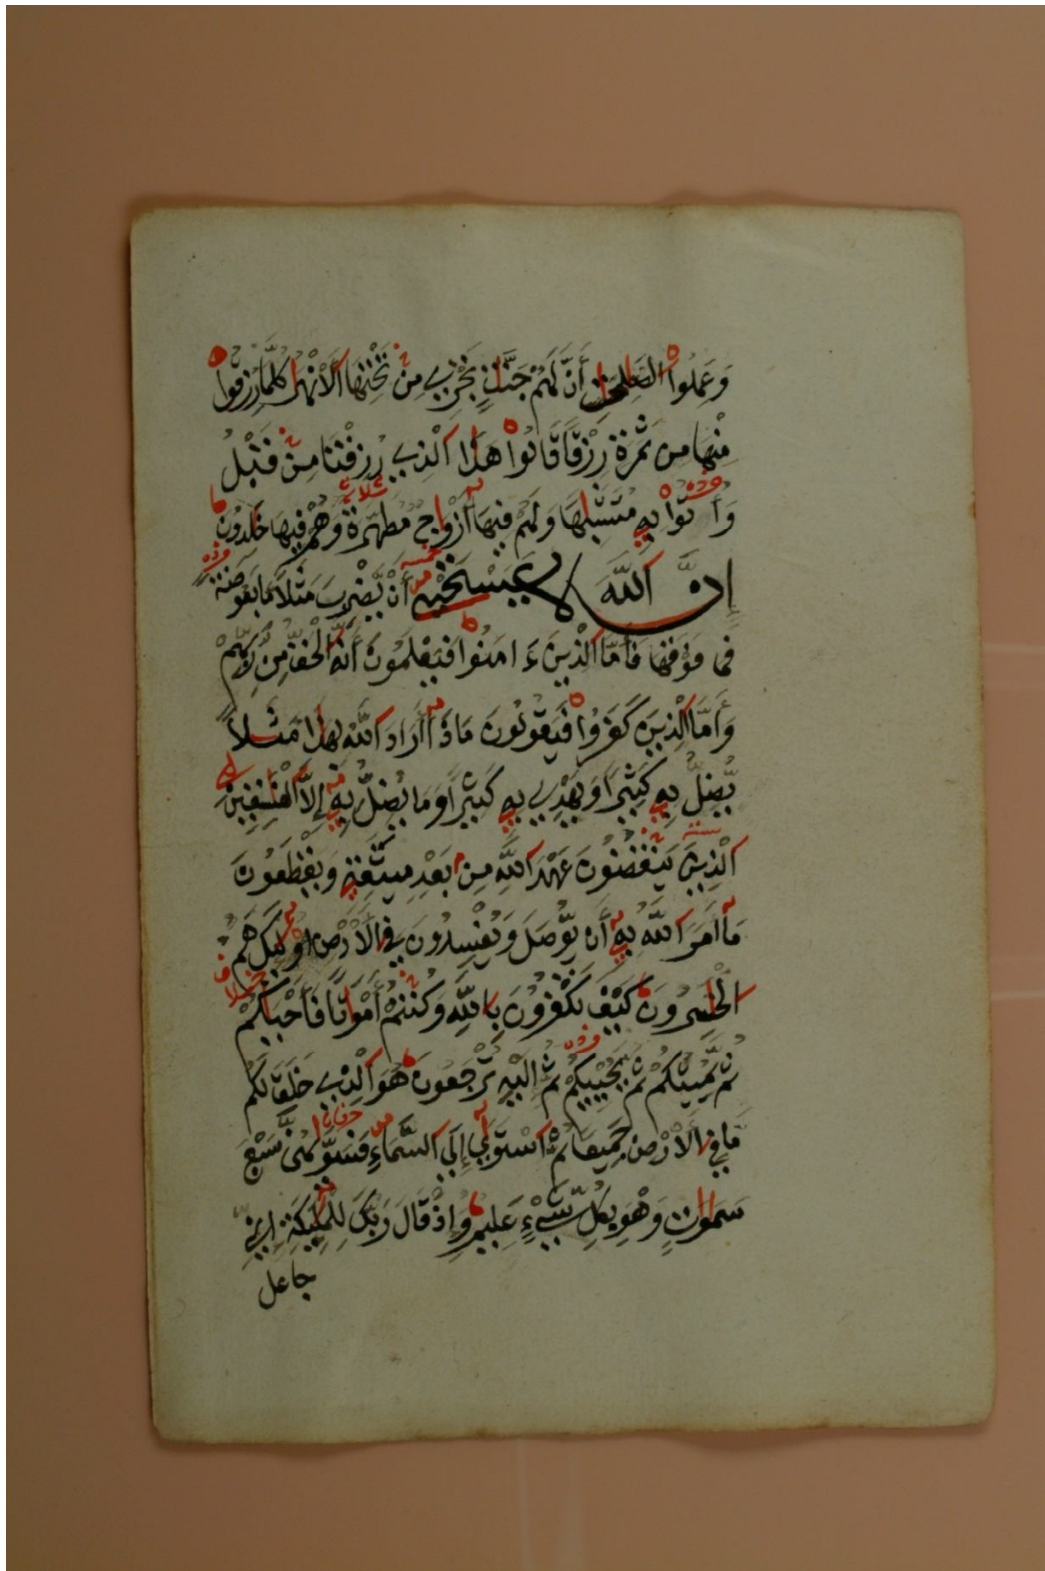 وَعَمِلُوا الصَّلِحَتِ أَنَّ لَهُمْ جَنَّتٍ تَجْرِي مِن تَحْتِهَا الْأَنْهَرُ كُلَّمَا رُزِقُوا
مِنْهَا مِن ثَمَرَةٍ رِّزْقًا قَالُوا هَذَا الَّذِي رُزِقْنَا مِن قَبْلُ
وَأُتُوا بِهِ مُتَشَبِهًا وَلَهُمْ فِيهَا أَزْوَاجٌ مُّطَهَّرَةٌ وَهُمْ فِيهَا خَلِدُونَ
إِنَّ اللَّهَ لَا يَسْتَحْيِي أَنْ يَّضْرِبَ مَثَلًا مَّا بَعُوضَةً
فَمَا فَوْقَهَا فَأَمَّا الَّذِينَ ءَامَنُوا فَيَعْلَمُونَ أَنَّهُ الْحَقُّ مِن رَّبِّهِمْ
وَأَمَّا الَّذِينَ كَفَرُوا فَيَقُولُونَ مَاذَا أَرَادَ اللَّهُ بِهَذَا مَثَلًا
يُّضِلُّ بِهِ كَثِيرًا وَيَهْدِي بِهِ كَثِيرًا وَمَا يُضِلُّ بِهِ إِلَّا الْفَسِقِينَ
الَّذِينَ يَنقُضُونَ عَهْدَ اللَّهِ مِن بَعْدِ مِيثَقِهِ وَيَقْطَعُونَ
مَا أَمَرَ اللَّهُ بِهِ أَن يُّوصَلَ وَيُفْسِدُونَ فِي الْأَرْضِ أُولَئِكَ هُمُ
الْخَسِرُونَ كَيْفَ تَكْفُرُونَ بِاللَّهِ وَكُنتُمْ أَمْوَاتًا فَأَحْيَاكُمْ
ثُمَّ يُمِيتُكُمْ ثُمَّ يُحْيِيكُمْ ثُمَّ إِلَيْهِ تُرْجَعُونَ هُوَ الَّذِي خَلَقَ لَكُم
مَّا فِي الْأَرْضِ جَمِيعًا ثُمَّ اسْتَوَى إِلَى السَّمَاءِ فَسَوَّىهُنَّ سَبْعَ
سَمَوَاتٍ وَهْوَ بِكُلِّ شَيْءٍ عَلِيمٌ وَإِذْ قَالَ رَبُّكَ لِلْمَلَئِكَةِ إِنِّي
جاعل